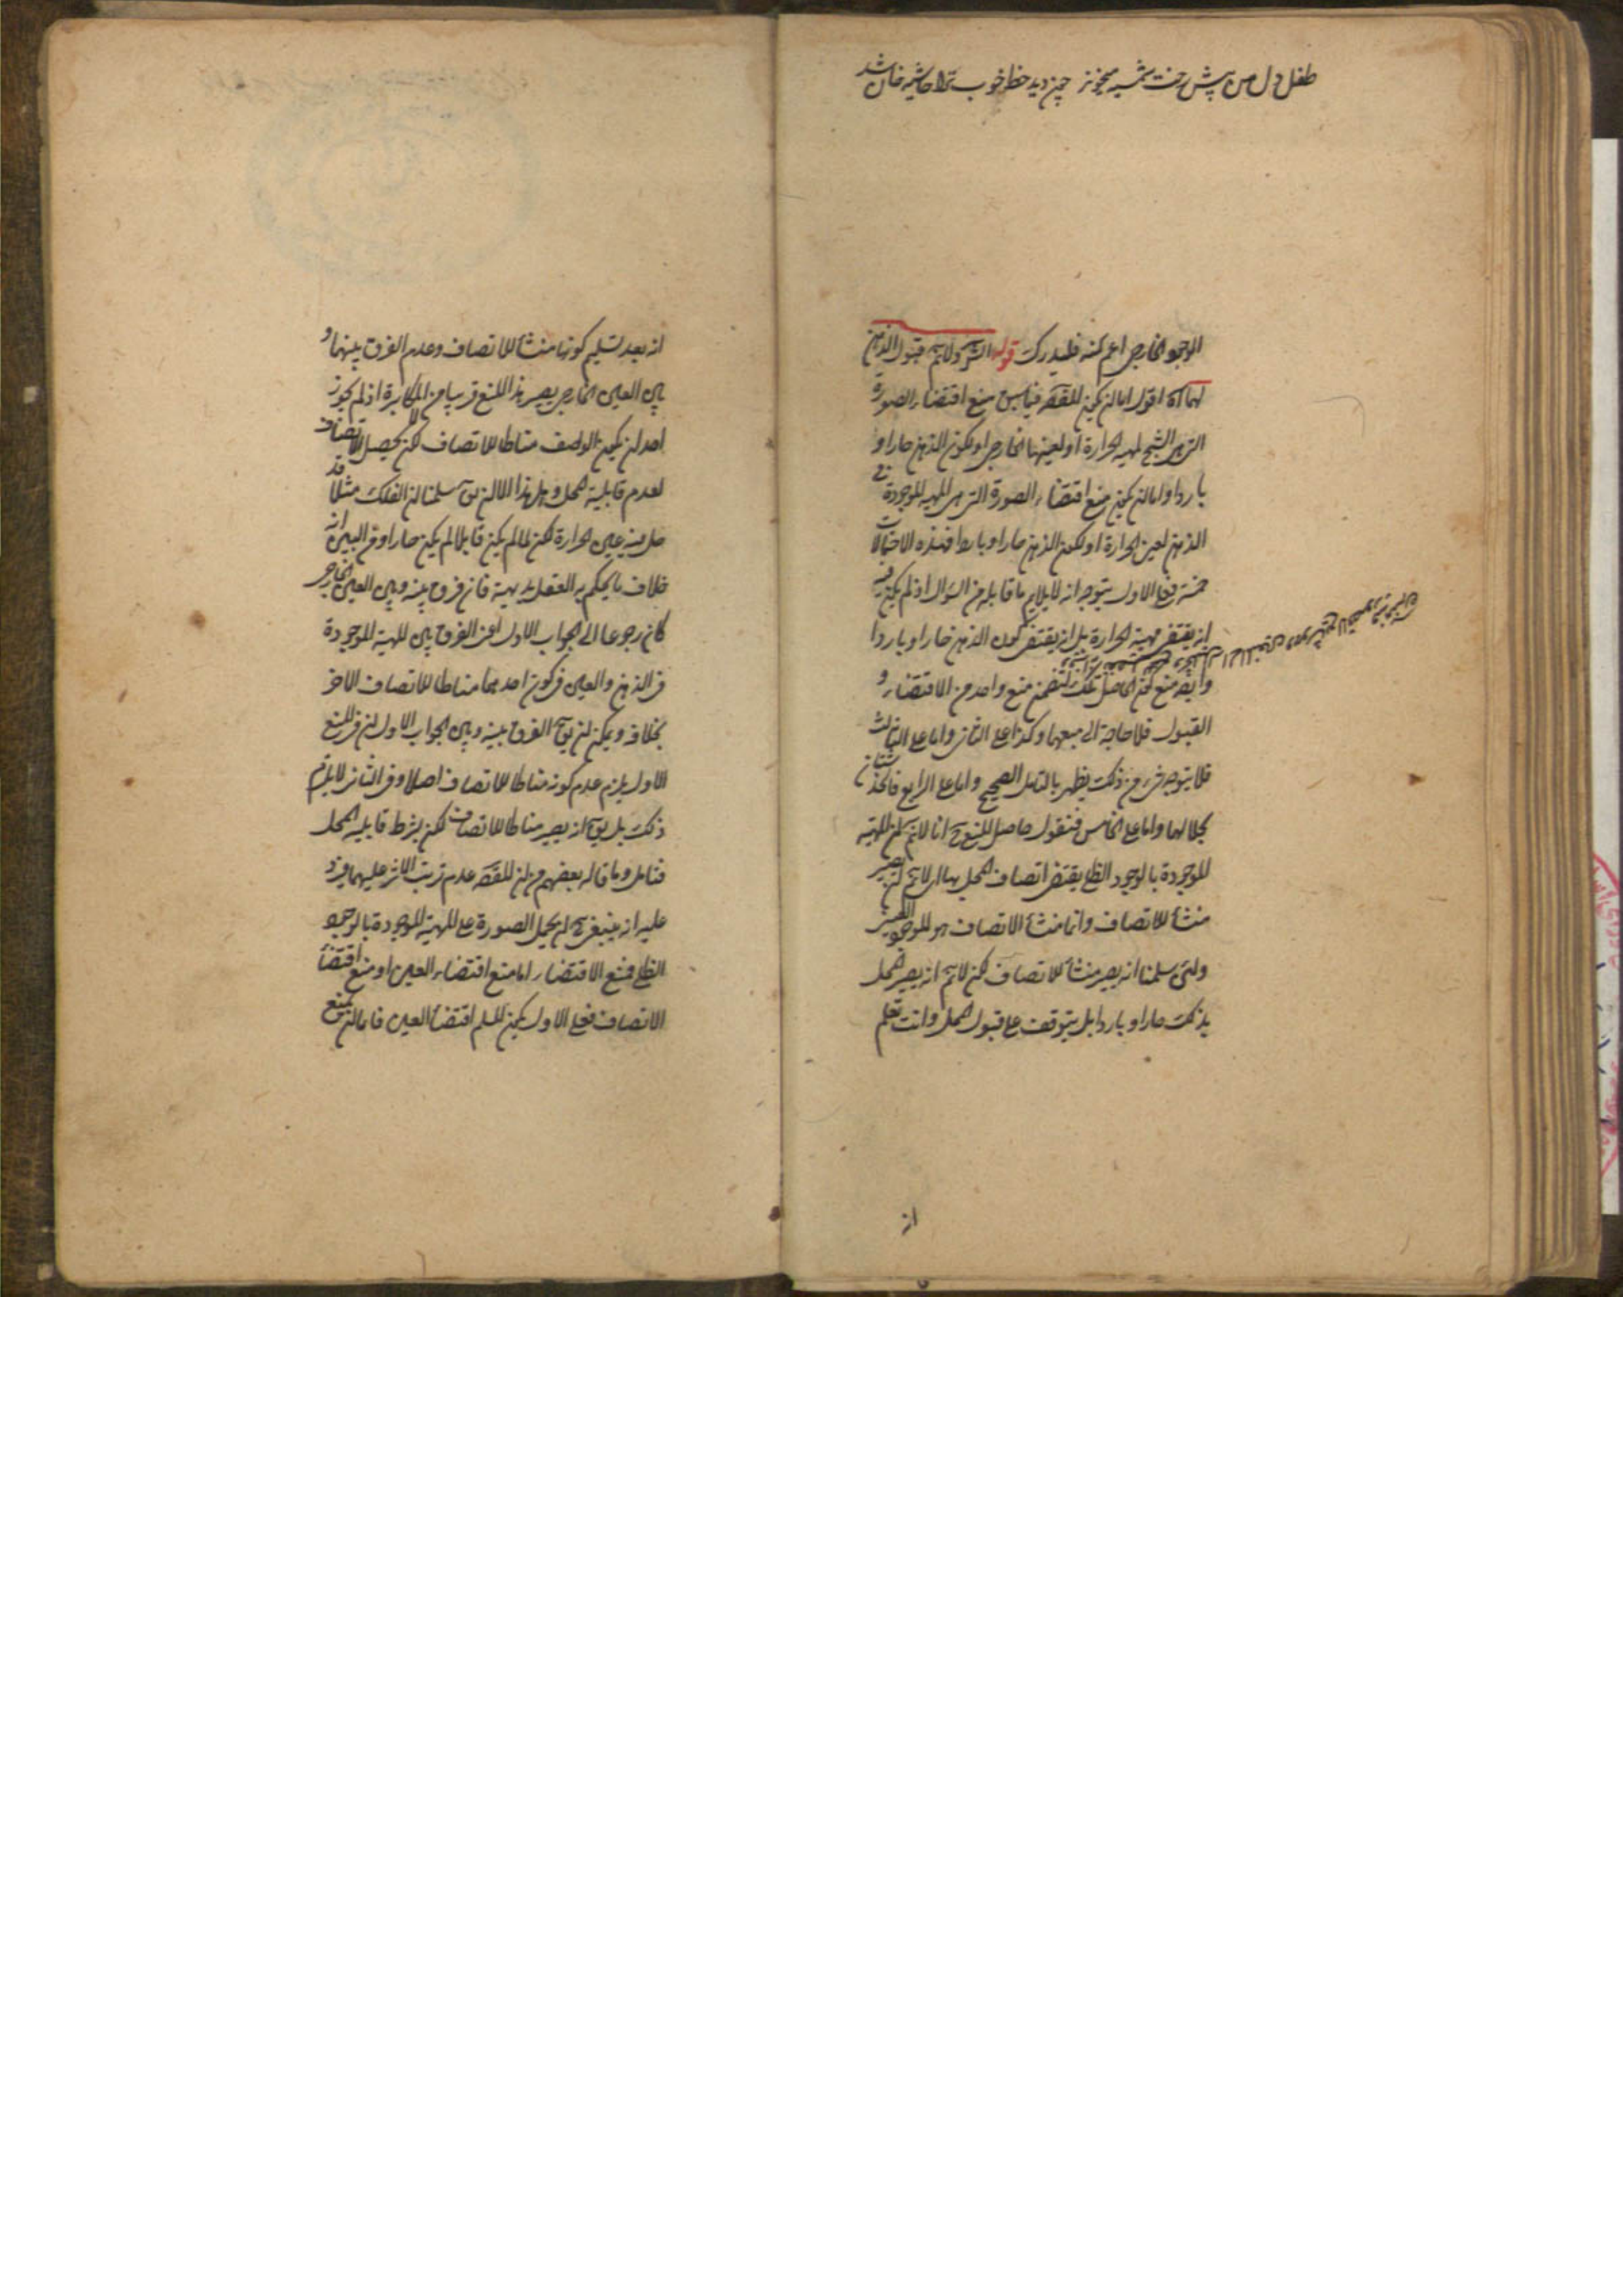 طفل دل من پیش رخت شمسیه میخواند چون دید خط خوب ترا حاشیه خان شد
الوجود الخارجی اعم کنه فلیدرک قوله الش ولانم قبول الذهن
لهما اه اقول اما ان یکون المقصود فیما سبق منع اقتضاء الصورة
التی هی الشبح لمهیة الحرارة او لعینها الخارجی او لکون الذهن حارا و
باردا و اما ان یکون منع اقتضاء الصورة التی هی المهیة الموجودة فی
الذهن لعین الحرارة او لکون الذهن حارا و باردا فهذه الاحتمالات
خمسة فعلی الاول یتوجه انه لا یلایم ما قابله من السؤال اذ لم یکن فیه
انه یقتضی مهیة الحرارة بل انه یقتضی کون الذهن حارا و باردا
وایضا منع کون الحاصل تلک یتضمن منع واحد من الاقتضاء و
القبول فلا حاجة الی منعهما وکذا علی الثانی واما علی الثالث
فلا یتوجه شیء من ذلک یظهر بالتامل الصحیح واما علی الرابع فالخدشتان
بحالهما واما علی الخامس فنقول حاصل المنع ح انا لانم ان المهیة
الموجودة بالوجود الظلی یقتضی اتصاف المحل بها ای لانم ان یصیر
منشأ للاتصاف وانما منشأ الاتصاف هو الموجود العینی
ولئن سلمنا انه یصیر منشأ للاتصاف لکن لانم انه یصیر المحل
بذلک حارا و باردا بل یتوقف علی قبول المحل وانت تعلم
از
انه بعد تسلیم کونها منشأ للاتصاف وعدم الفرق بینها و
بین العین الخارجی یصیر هذا المنع قریبا من المکابرة اذ لم یجوز
احد ان یکون الوصف مناطا للاتصاف لکن لا یحصل الاتصاف
لعدم قابلیة المحل وهل هذا الا ان یق سلمنا ان الفلک مثلا قد
حل فیه عین الحرارة لکن لما لم یکن قابلا لم یکن حارا ومن البین انه
خلاف ما یحکم به العقل بدیهة فان فرق بینه وبین العین الخارجی
کان رجوعا الی الجواب الاول اعنی الفرق بین المهیة الموجودة
فی الذهن والعین فی کون احدهما مناطا للاتصاف الاخر
بخلافه ویمکن ان یق الفرق بینه وبین الجواب الاول ان فی المنع
الاول یلزم عدم کونه مناطا للاتصاف اصلا وفی الثانی لا یلزم
ذلک بل یق انه یصیر مناطا للاتصاف لکن بشرط قابلیة المحل
فتامل وما قاله بعضهم من ان المقصود عدم ترتب الاثر علیهما فیرد
علیه انه ینبغی ح ان یحمل الصورة علی المهیة الموجودة بالوجود
الظلی فمنع الاقتضاء اما منع اقتضاء العین او منع اقتضاء
الاتصاف فعلی الاول یکون المسلم اقتضاء العین فاما ان یمنع